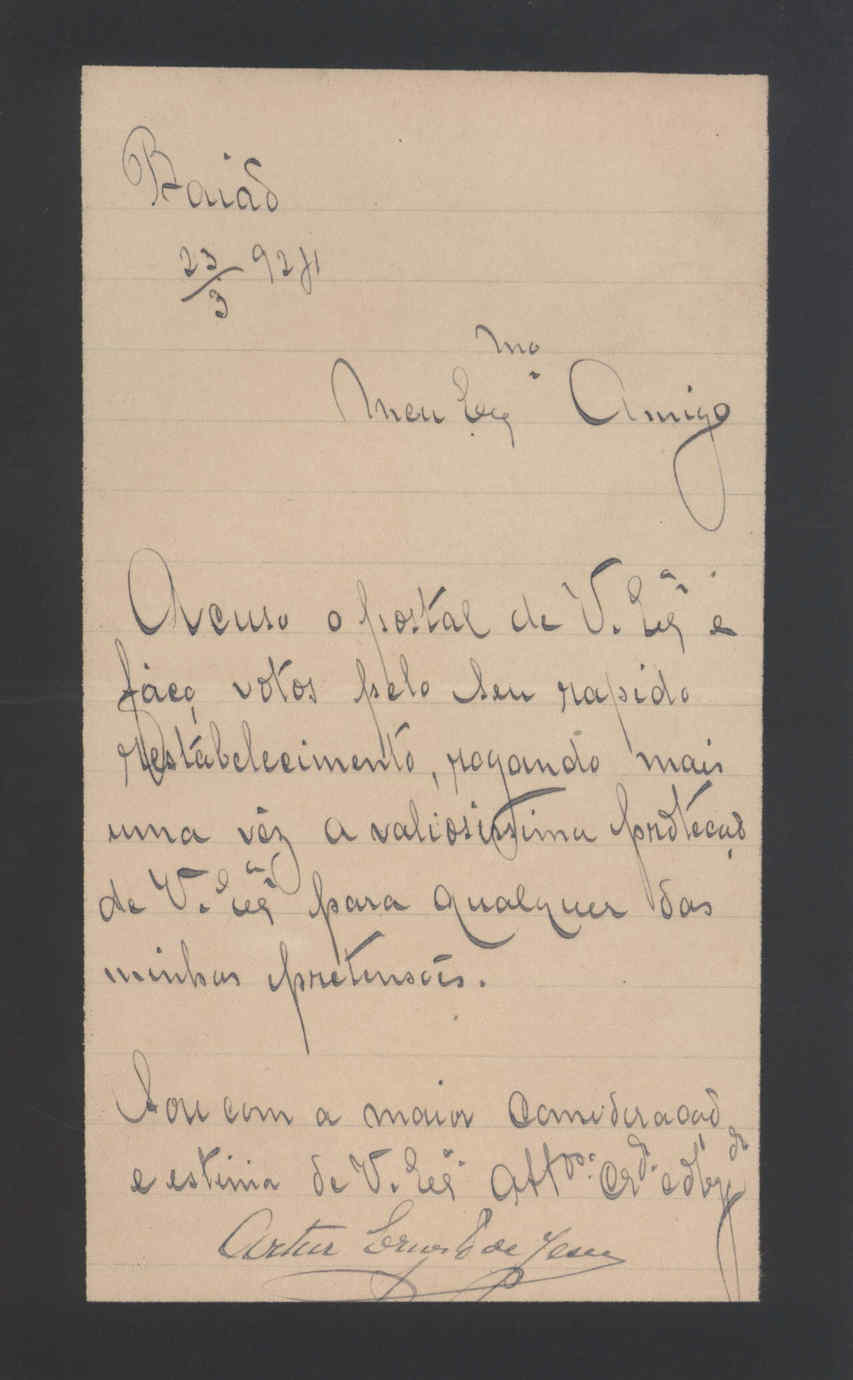 Baião
23/3 921
Meu Exmo Amigo
Acuso o postal de V. Exa e
faço votos pelo seu rapido
restabelecimento, rogando mais
uma vêz a valiosissima protecção
de V. Exa para qualquer das
minhas pretensões.
Sou com a maior consideração
e estima de V. Exa Attº. Crdº. e obgdº
Artur Ernesto de Jesus